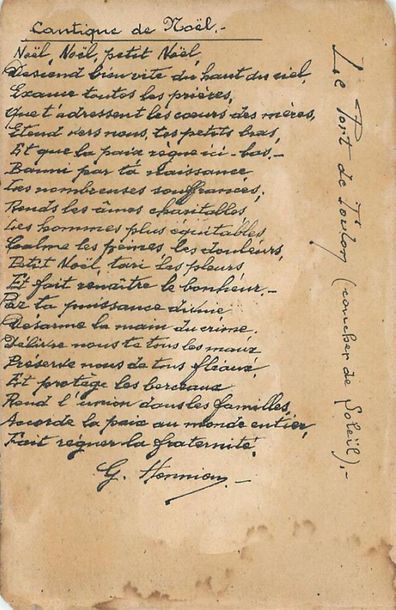 Cantique de Noël.-
Noël, Noël, petit Noël,
Descend bien vite du haut du ciel,
Exauce toutes les prières,
Que t'adressent les cœurs des mères,
Etend vers nous, tes petits bras
Et que la paix règne ici-bas.-
Banni par ta naissance
Les nombreuses souffrances,
Rends les âmes charitables
Les hommes plus équitables
Calme les peines les douleurs,
Petit Noël, tari les pleurs
Et fait renaître le bonheur.-
Par ta puissance divine
Désarme la main du crime.
Délivre nous de tous les maux
Préserve nous de tous fléaux,
Et protège les berceaux
Rend l'union dans les familles,
Accorde la paix au monde entier,
Fait régner la fraternité.
G. Hennion.-
Le Port de Toulon (coucher de Soleil).-